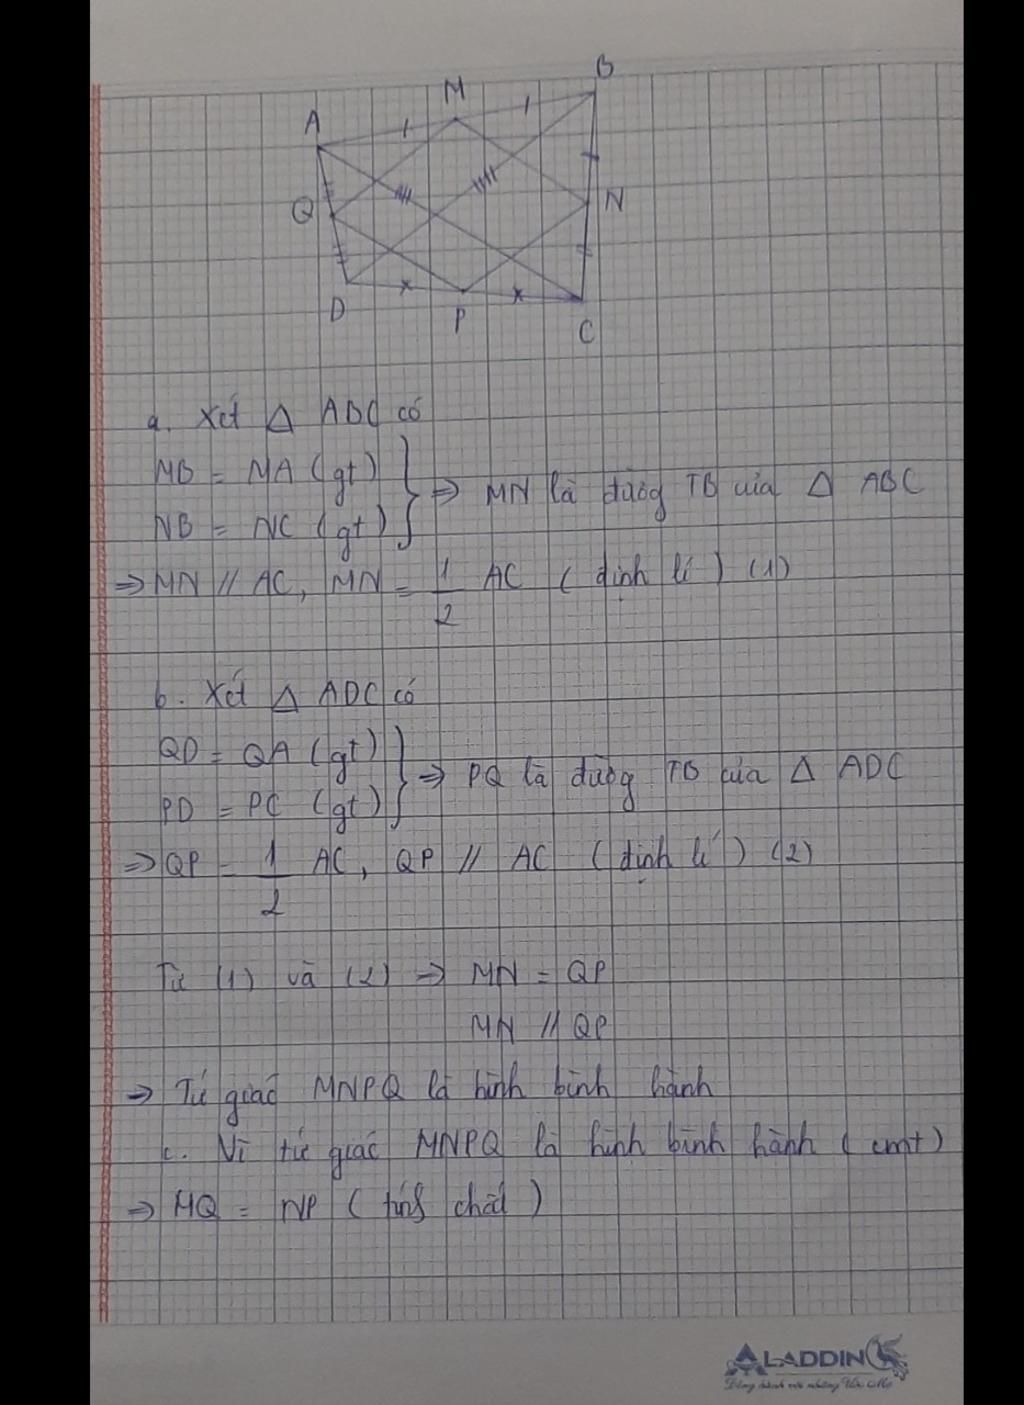 B
M
A
Q
N
D
P
C
a. Xét Δ ABC có
MB = MA (gt)
NB = NC (gt)
} => MN là đường TB của Δ ABC
=> MN // AC, MN = 1/2 AC (định lí) (1)
b. Xét Δ ADC có
QD = QA (gt)
PD = PC (gt)
} => PQ là đường TB của Δ ADC
=> QP = 1/2 AC, QP // AC (định lí) (2)
Từ (1) và (2) => MN = QP
MN // QP
=> Tứ giác MNPQ là hình bình hành
c. Vì tứ giác MNPQ là hình bình hành (cmt)
=> MQ = NP (tính chất)
ALADDIN